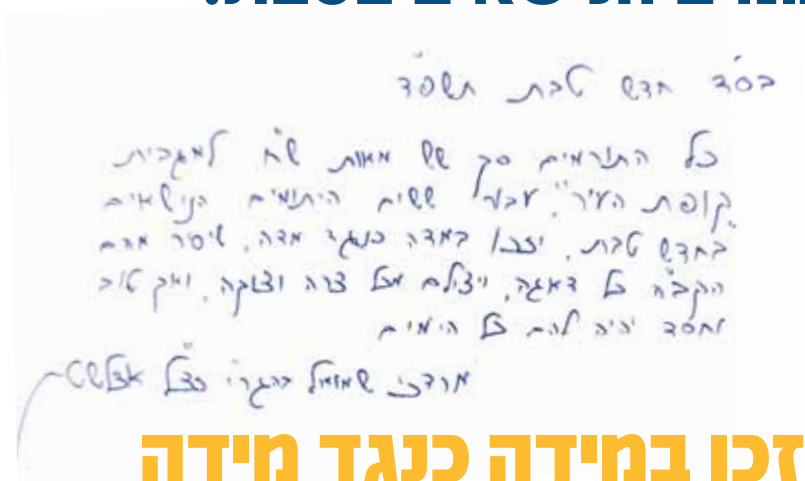 בס"ד חדש טבת תשפ"ד
כל התורמים סך שש מאות ש"ח למגבית
"קופת העיר", עבור ששים היתומים הנישאים
בחדש טבת, יזכו במדה כנגד מדה, שיסר מהם
הקב"ה כל דאגה, ויצילם מכל צרה וצוקה, ואך טוב
וחסד יהיה להם כל הימים
מרדכי שמואל
זכו במידה כנגד מידה